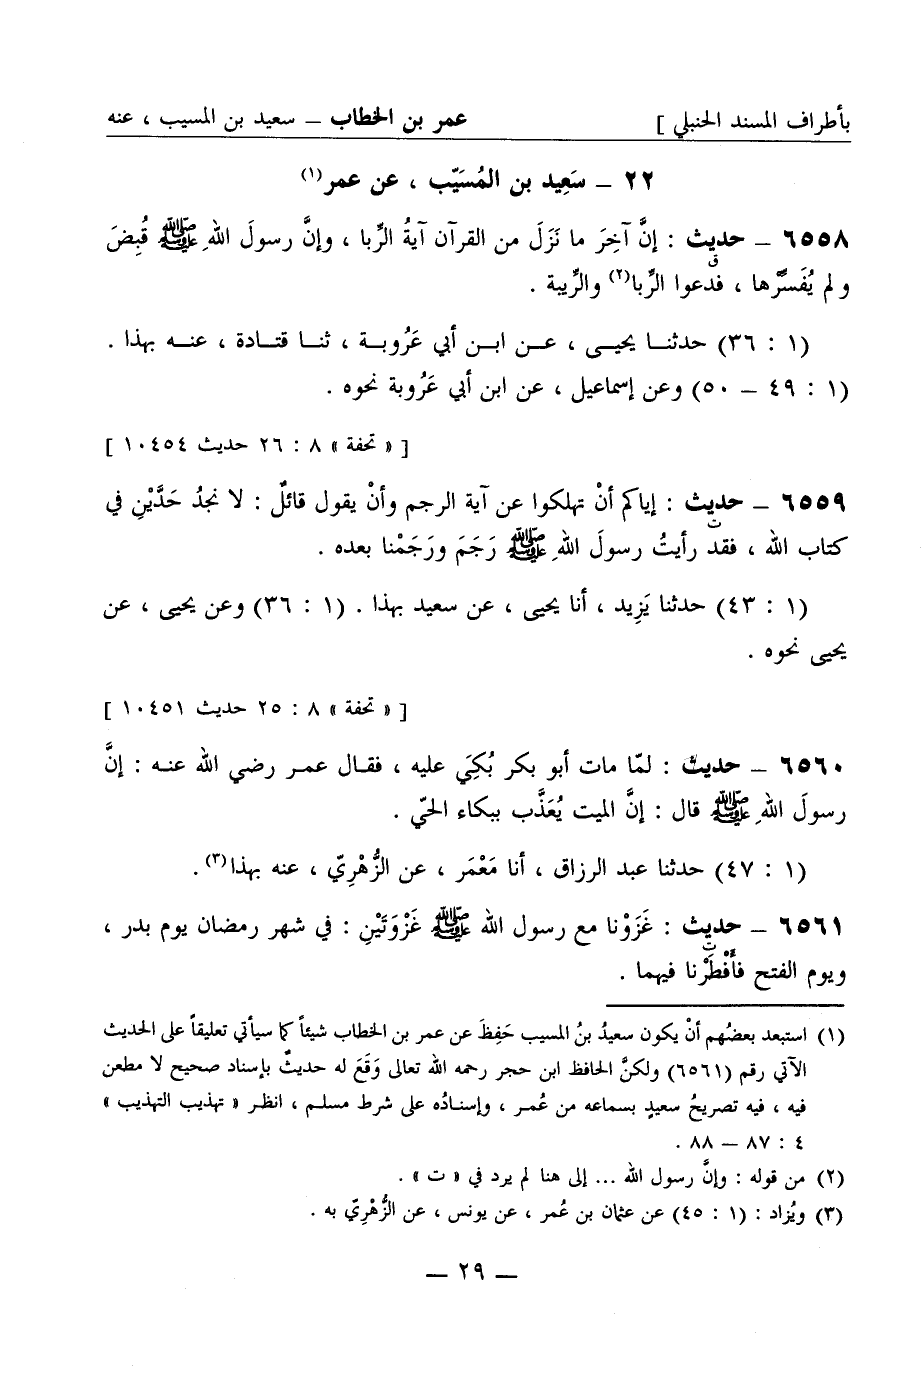 بأطراف المسند الحنبلي ] عمر بن الخطاب – سعيد بن المسيب ، عنه
٢٢ – سَعِيد بن المُسَيّب ، عن عمر(١)
٦٥٥٨ – حديث : إنَّ آخِرَ ما نَزَلَ من القرآن آيةُ الرِّبا ، وإنَّ رسولَ اللهِ ﷺ قُبِضَ
ق
ولم يُفَسِّرها ، فدعوا الرِّبا(٢) والرِّيبة .
(١ : ٣٦) حدثنـا يحيـى ، عـن ابـن أبي عَرُوبـة ، ثنـا قتـادة ، عنـه بهذا .
(١ : ٤٩ – ٥٠) وعن إسماعيل ، عن ابن أبي عَرُوبة نحوه .
[ « تحفة » ٨ : ٢٦ حديث ١٠٤٥٤ ]
٦٥٥٩ – حديث : إياكم أنْ تهلكوا عن آية الرجم وأنْ يقول قائلٌ : لا نجدُ حَدَّيْنِ في
ت
كتاب الله ، فقد رأيتُ رسولَ اللهِ ﷺ رَجَمَ ورَجَمْنا بعده .
(١ : ٤٣) حدثنا يَزِيد ، أنا يحيى ، عن سعيد بهذا . (١ : ٣٦) وعن يحيى ، عن
يحيى نحوه .
[ « تحفة » ٨ : ٢٥ حديث ١٠٤٥١ ]
٦٥٦٠ – حديث : لمّا مات أبو بكر بُكِيَ عليه ، فقـال عمـر رضي الله عنـه : إنَّ
رسولَ اللهِ ﷺ قال : إنَّ الميت يُعَذَّب ببكاء الحيّ .
(١ : ٤٧) حدثنا عبد الرزاق ، أنا مَعْمَر ، عن الزُّهْرِيّ ، عنه بهذا(٣) .
٦٥٦١ – حديث : غَزَوْنا مع رسول الله ﷺ غَزْوَتَيْنِ : في شهر رمضان يوم بدر ،
ت
ويوم الفتح فأَفْطَرْنا فيهما .
(١) استبعد بعضُهم أنْ يكون سعيدُ بنُ المسيب حَفِظَ عن عمر بن الخطاب شيئاً كما سيأتي تعليقاً على الحديث
الآتي رقم (٦٥٦١) ولكنَّ الحافظ ابن حجر رحمه الله تعالى وَقَعَ له حديثٌ بإسناد صحيح لا مطعن
فيه ، فيه تصريحُ سعيدٍ بسماعه من عُمـر ، وإسنـادُه على شرط مسلـم ، انظـر « تهذيب التهذيب »
٤ : ٨٧ – ٨٨ .
(٢) من قوله : وإنَّ رسول الله ... إلى هنا لم يرد في « ت » .
(٣) ويُزاد : (١ : ٤٥) عن عثمان بن عُمر ، عن يونس ، عن الزُّهْرِيّ به .
– ٢٩ –